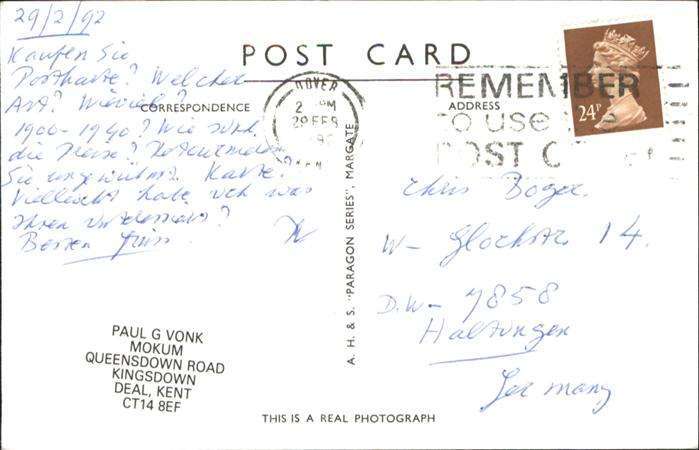 29/2/92
Kaufen Sie
Postkarte? Welcher
Art? Wieviel?
1900-1940? Wie sind
die Preise?
Sie Karte.
Vielleicht habe ich was
Ihren
Besten Gruss.
POST CARD
CORRESPONDENCE
ADDRESS
DOVER
29 FEB
REMEMBER
to use the
POST C
24P
Chris Boger.
W- Glockstr. 14.
D.W- 7858
Haltingen
Germany
A. H. & S. "PARAGON SERIES", MARGATE
PAUL G VONK
MOKUM
QUEENSDOWN ROAD
KINGSDOWN
DEAL, KENT
CT14 8EF
THIS IS A REAL PHOTOGRAPH